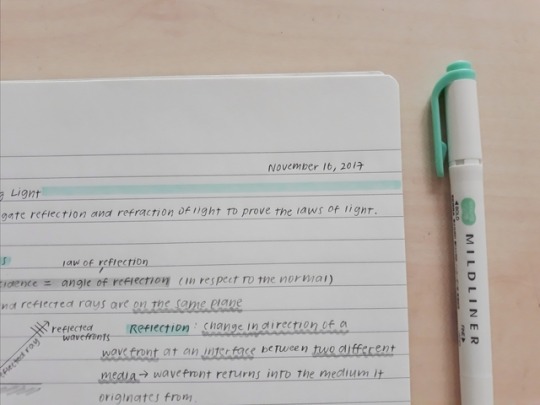 November 16, 2017
g Light
gate reflection and refraction of light to prove the laws of light.
law of reflection
idence = angle of reflection (in respect to the normal)
nd reflected rays are on the same plane
reflected wavefronts
Reflection: change in direction of a
wavefront at an interface between two different
media → wavefront returns into the medium it
originates from.
MILDLINER